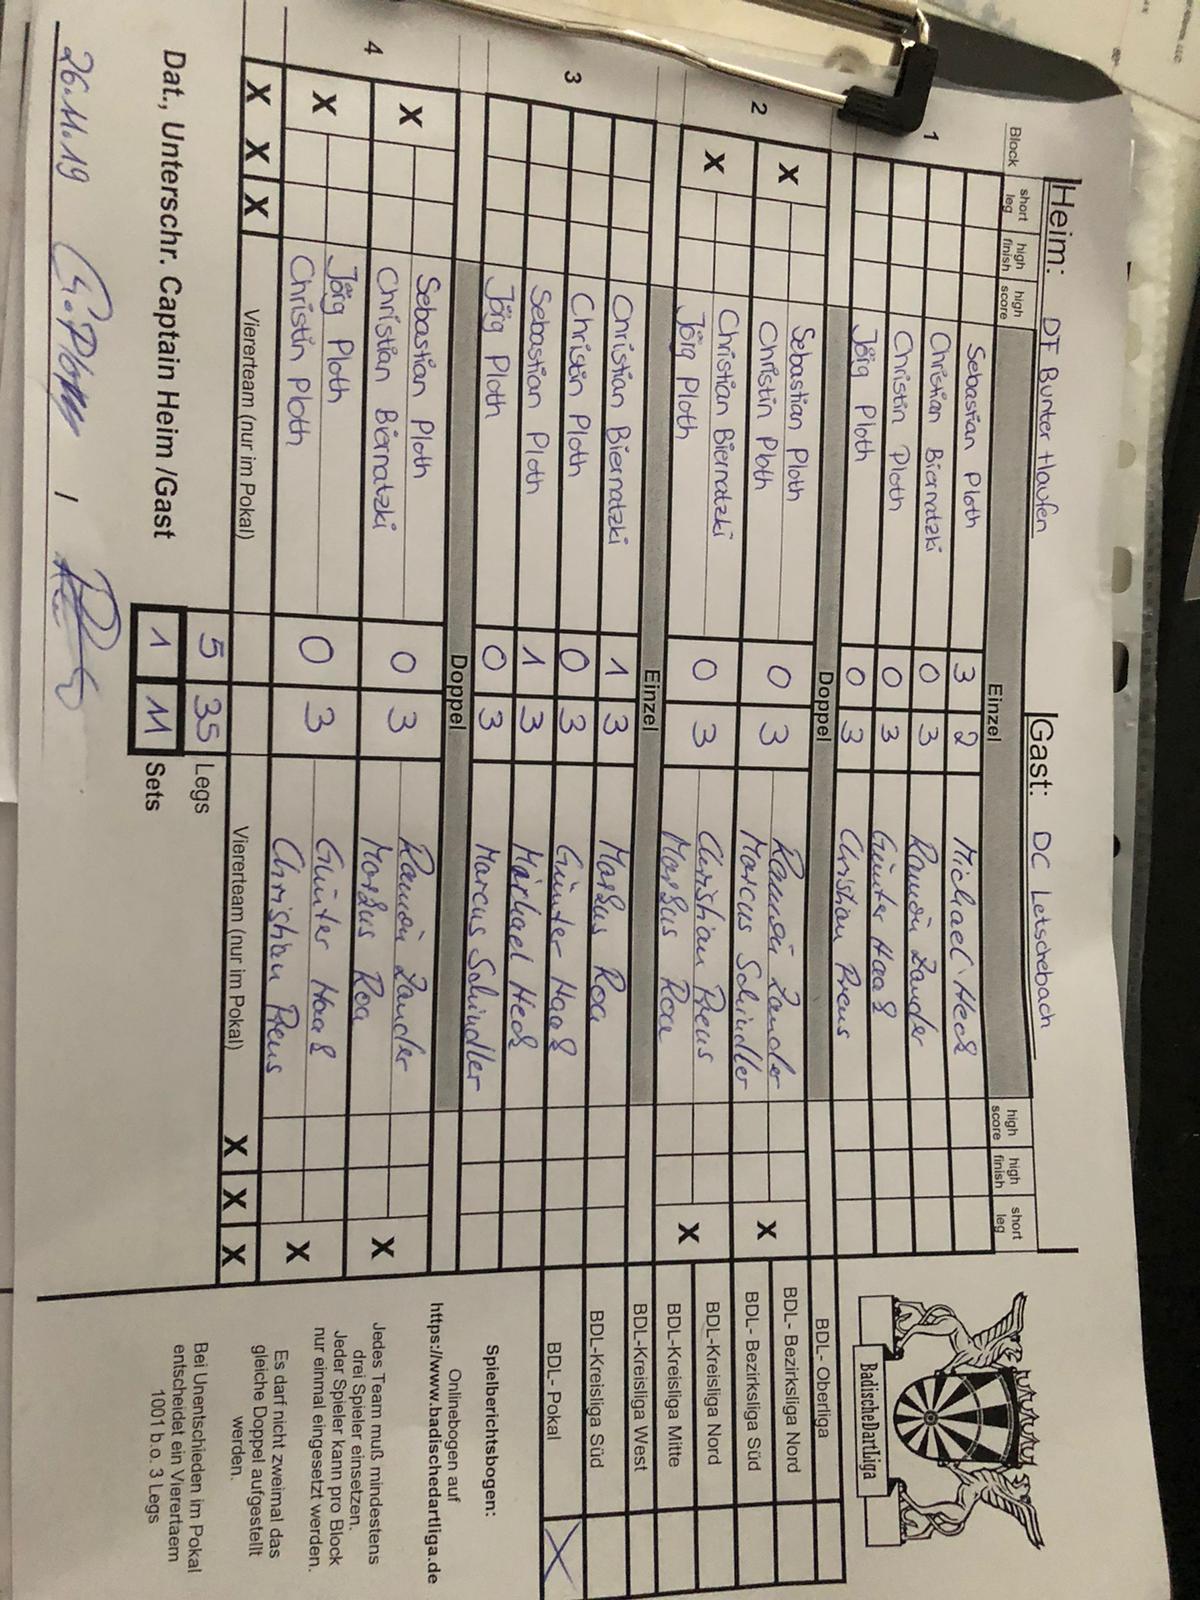 Heim: DF Bunter Haufen Gast: DC Letschebach
Block short leg high finish high score Einzel high score high finish short leg
1 Sebastian Ploth 3 2 Michael Heck
Christian Biernatzki 0 3 Ramón Zander
Christin Ploth 0 3 Günter Haas
Jörg Ploth 0 3 Christian Preus
Doppel
2 X Sebastian Ploth 0 3 Ramón Zander X
Christin Ploth Marcus Schindler
X Christian Biernatzki 0 3 Christian Preus X
Jörg Ploth Markus Roa
Einzel
3 Christian Biernatzki 1 3 Markus Roa
Christin Ploth 0 3 Günter Haas
Sebastian Ploth 1 3 Michael Heck
Jörg Ploth 0 3 Marcus Schindler
Doppel
4 X Sebastian Ploth 0 3 Ramón Zander X
Christian Biernatzki Markus Roa
X Jörg Ploth 0 3 Günter Haas X
Christin Ploth Christian Preus
X X X Viererteam (nur im Pokal) Viererteam (nur im Pokal) X X X
5 35 Legs
Dat., Unterschr. Captain Heim /Gast 1 11 Sets
26.11.19 C. Ploth /
BadischeDartLiga
BDL- Oberliga
BDL- Bezirksliga Nord
BDL- Bezirksliga Süd
BDL-Kreisliga Nord
BDL-Kreisliga Mitte
BDL-Kreisliga West
BDL-Kreisliga Süd
BDL- Pokal X
Spielberichtsbogen:
Onlinebogen auf
https://www.badischedartliga.de
Jedes Team muß mindestens
drei Spieler einsetzen.
Jeder Spieler kann pro Block
nur einmal eingesetzt werden.
Es darf nicht zweimal das
gleiche Doppel aufgestellt
werden.
Bei Unentschieden im Pokal
entscheidet ein Vierertaem
1001 b.o. 3 Legs